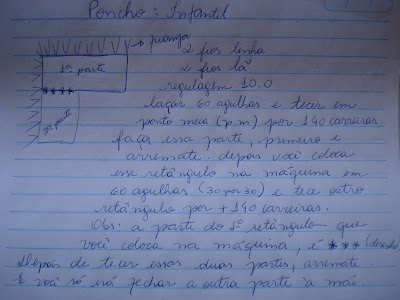 Poncho: Infantil
→ franja
1º parte
2º parte
2 fios linha
2 fios lã
regulagem 10.0
laçar 60 agulhas e tecer em
ponto meia (p.m) por 140 carreiras
faça essa parte, primeiro e
arremate. depois você coloca
esse retângulo na máquina em
60 agulhas (30 por 30) e tece outro
retângulo por + 140 carreiras.
Obs: a parte do 1º retângulo que
você coloca na máquina, é *** (desenho
Depois de tecer essas duas partes, arremate
e você só irá fechar a outra parte a mão.